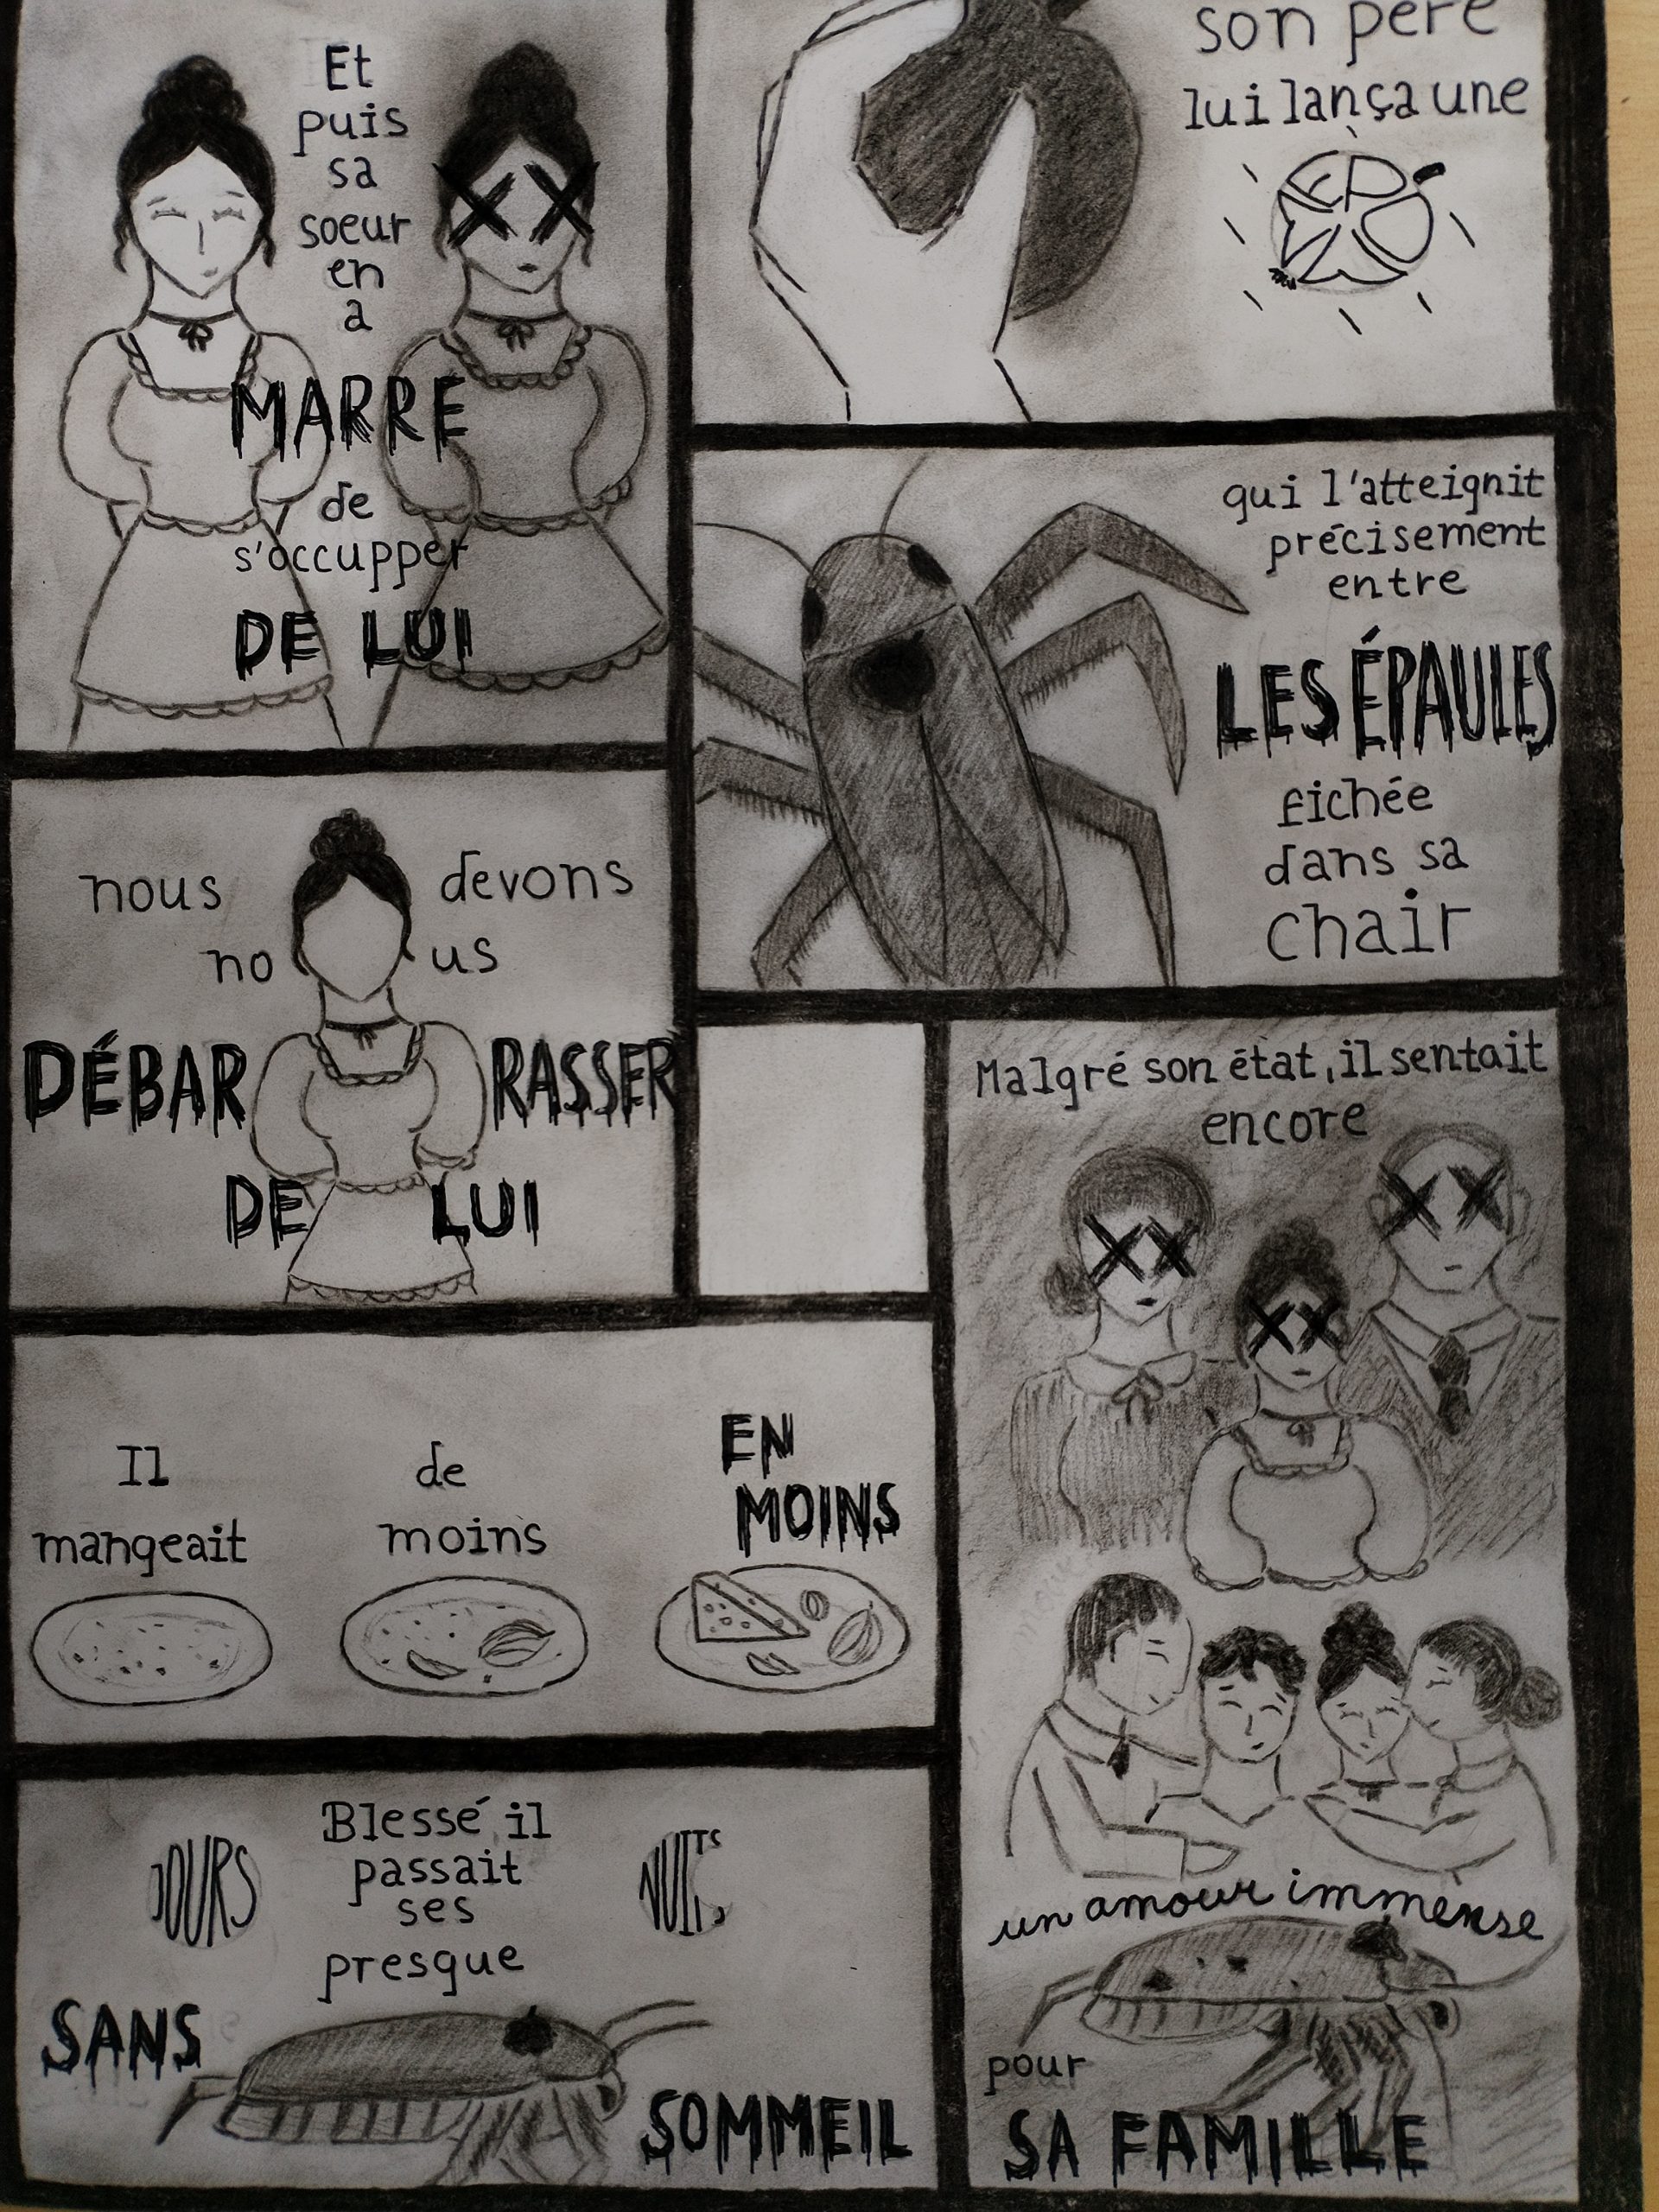 Et
puis
sa
soeur
en
a
MARRE
de
s'occupper
DE LUI
nous devons
no us
DÉBAR RASSER
DE LUI
son père
lui lança une
qui l'atteignit
précisement
entre
LES ÉPAULES
fichée
dans sa
chair
Il
mangeait
de
moins
EN
MOINS
Blessé, il
passait
ses
JOURS
NUITS
presque
SANS
SOMMEIL
Malgré son état, il sentait
encore
un amour immense
pour
SA FAMILLE